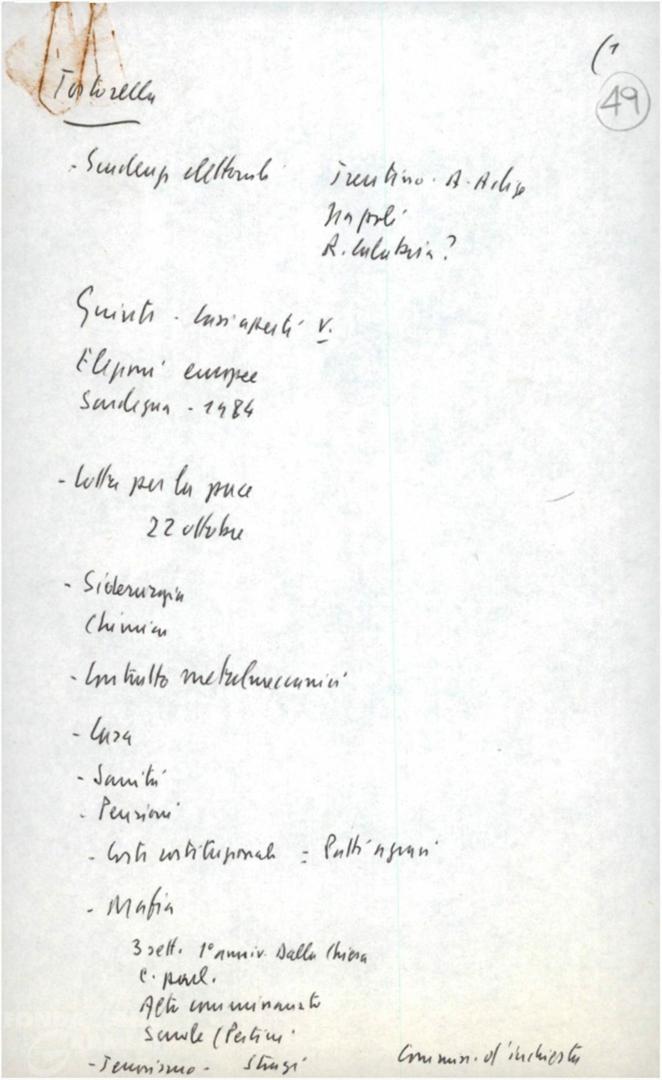 (1
49
Tortorella
- Scadenze elettorali Trentino. A. Adige
Napoli
R. Calabria?
Giunte - Casi aperti V.
Elezioni europee
Sardegna - 1984
- Lotta per la pace
22 ottobre
- Siderurgia
Chimica
- Contratto metalmeccanici
- Casa
- Sanità
- Pensioni
- Corte costituzionale = Patti agrari
- Mafia
3 sett. 1° anniv. Dalla Chiesa
C. parl.
Alto commissariato
Scuole (Pertini
- Terrorismo - Stragi Commiss. d'inchiesta